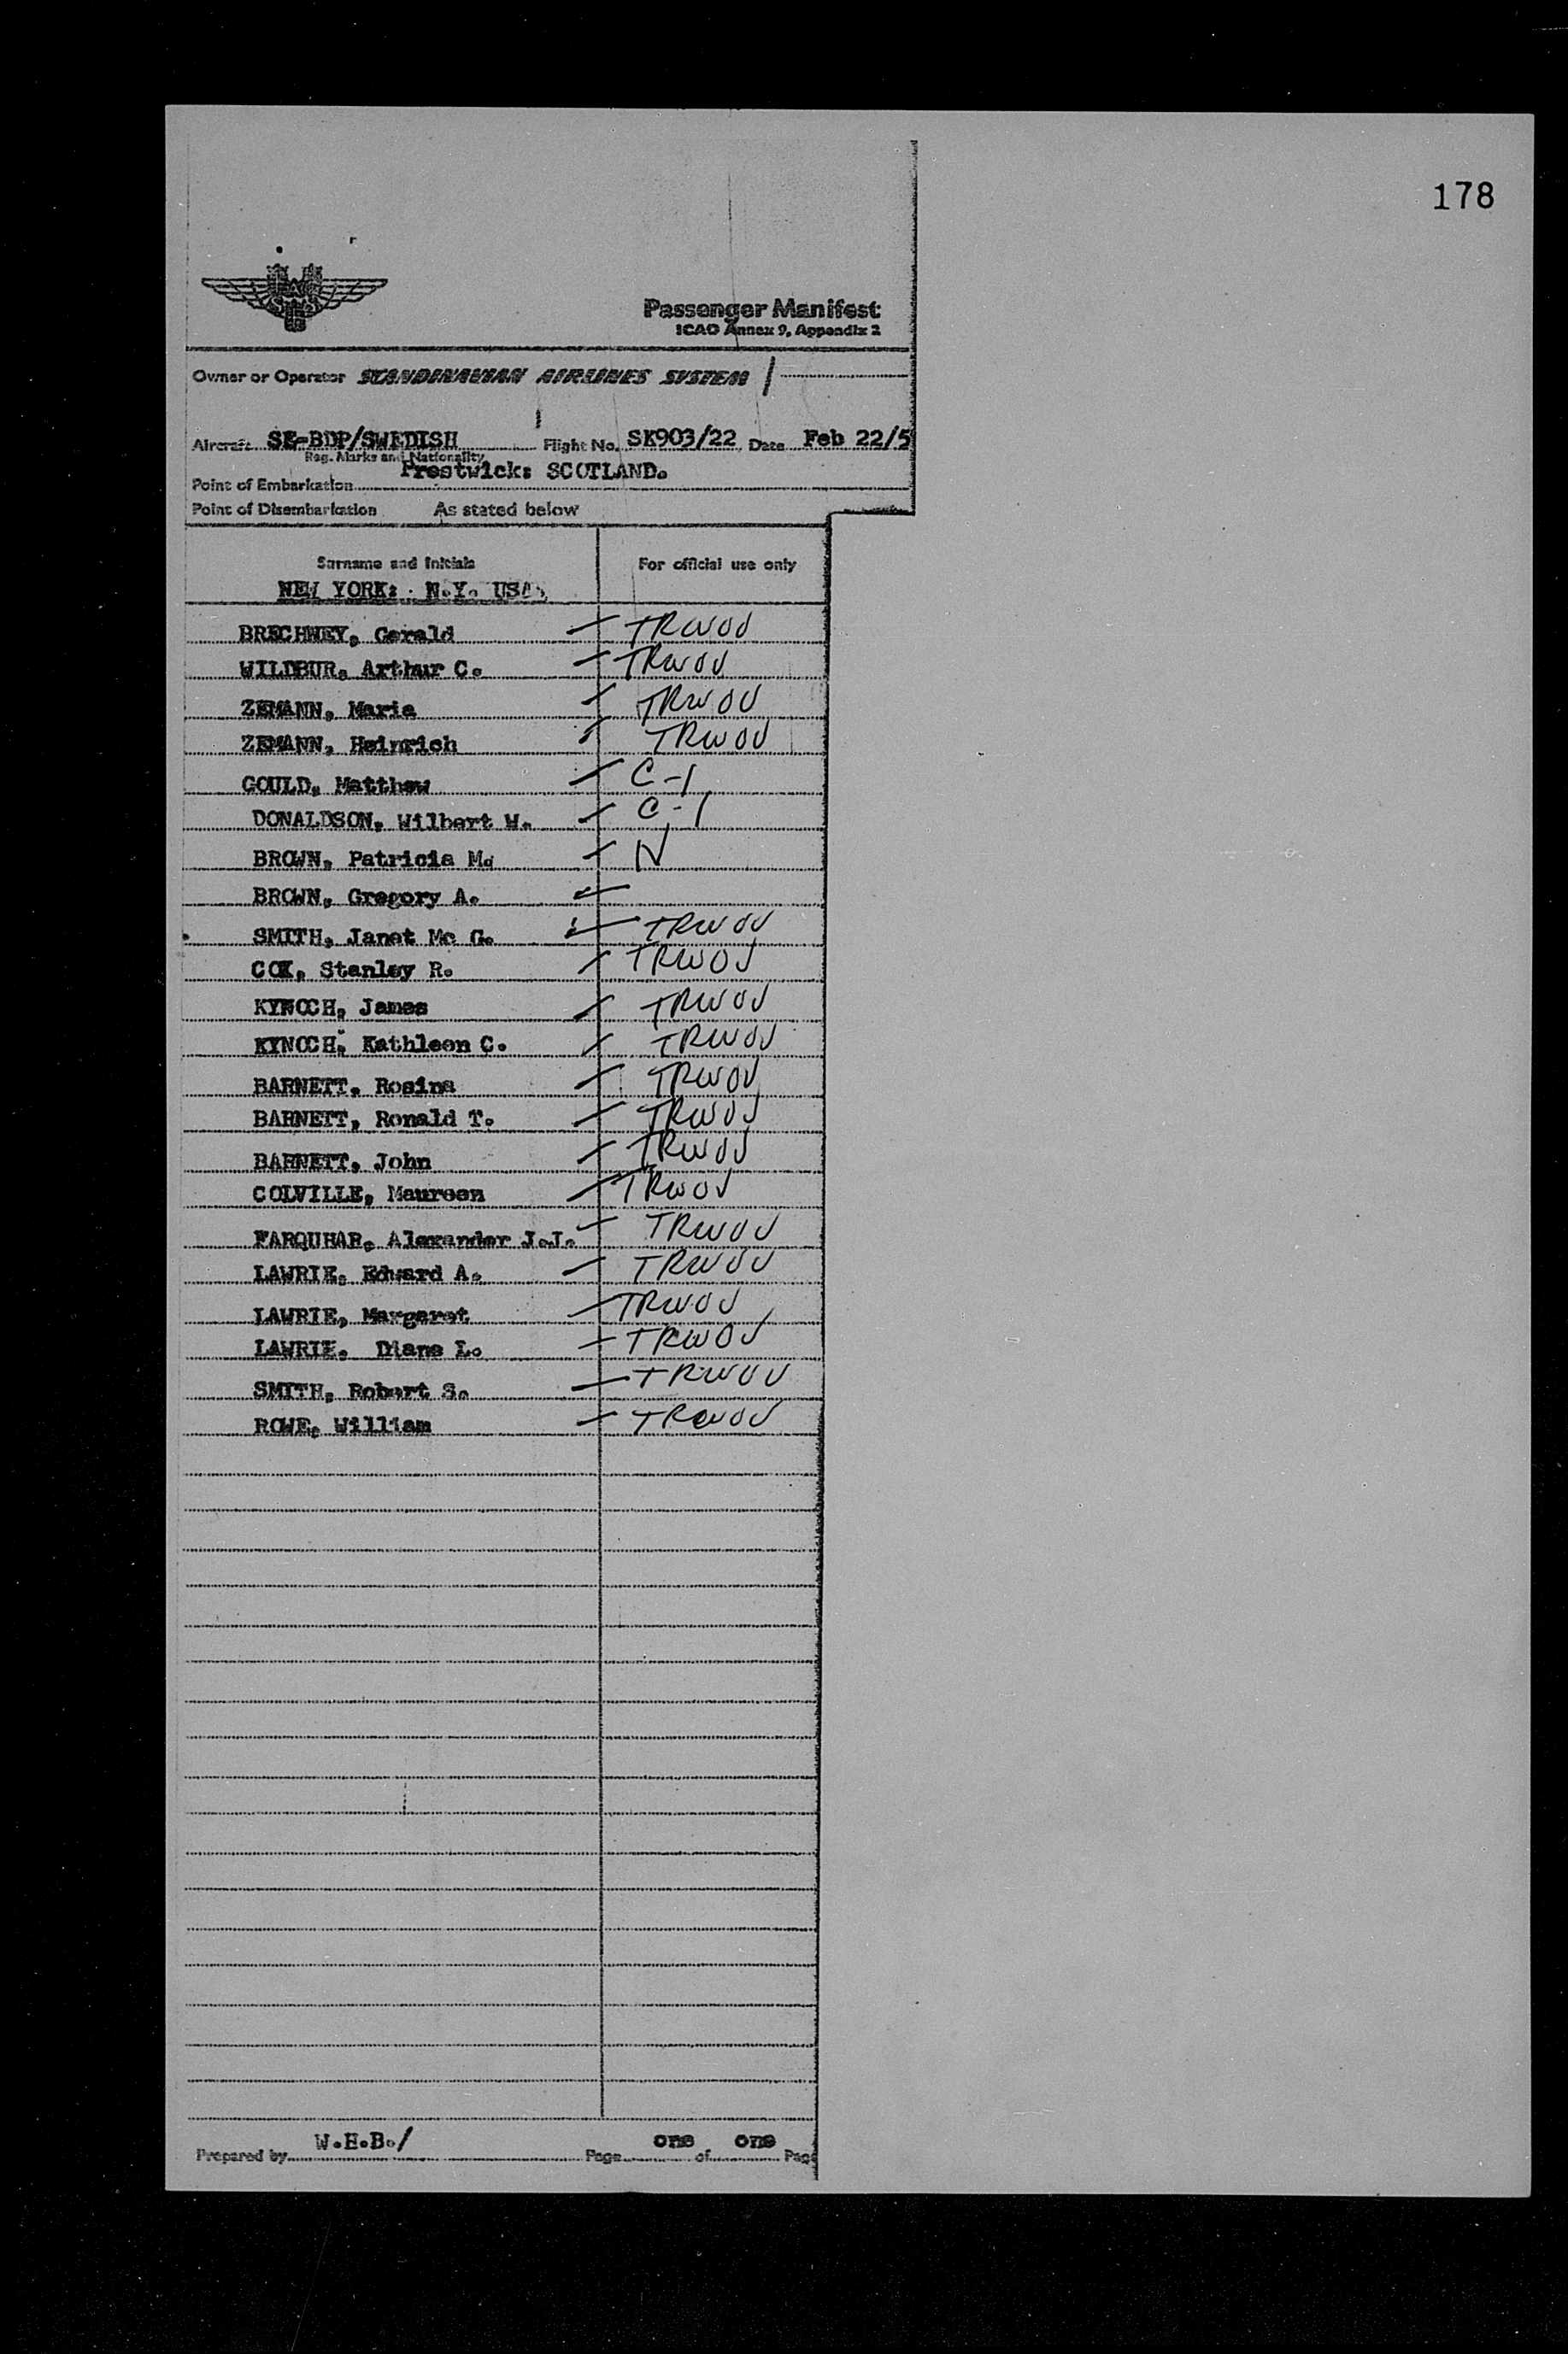 178
SAS
Passenger Manifest
ICAO Annex 9, Appendix 2
Owner or Operator SCANDINAVIAN AIRLINES SYSTEM
Aircraft SE-BDP/SWEDISH Flight No. SK903/22 Date Feb 22/5
Reg. Marks and Nationality
Point of Embarkation Prestwick: SCOTLAND.
Point of Disembarkation As stated below
Surname and Initials For official use only
NEW YORK: N.Y. USA.
BRECHNEY, Gerald TRWOV
WILDBUR, Arthur C. TRWOV
ZEMANN, Maria TRWOV
ZEMANN, Heinrich TRWOV
GOULD, Matthew C-1
DONALDSON, Wilbert W. C-1
BROWN, Patricia M. N
BROWN, Gregory A.
SMITH, Janet Mc G. TRWOV
COX, Stanley R. TRWOV
KYNOCH, James TRWOV
KYNOCH, Kathleen C. TRWOV
BARNETT, Rosina TRWOV
BARNETT, Ronald T. TRWOV
BARNETT, John TRWOV
COLVILLE, Maureen TRWOV
FARQUHAR, Alexander J.J. TRWOV
LAWRIE, Edward A. TRWOV
LAWRIE, Margaret TRWOV
LAWRIE, Diane L. TRWOV
SMITH, Robert S. TRWOV
ROWE, William TRWOV
Prepared by W.E.B./ Page one of one Page